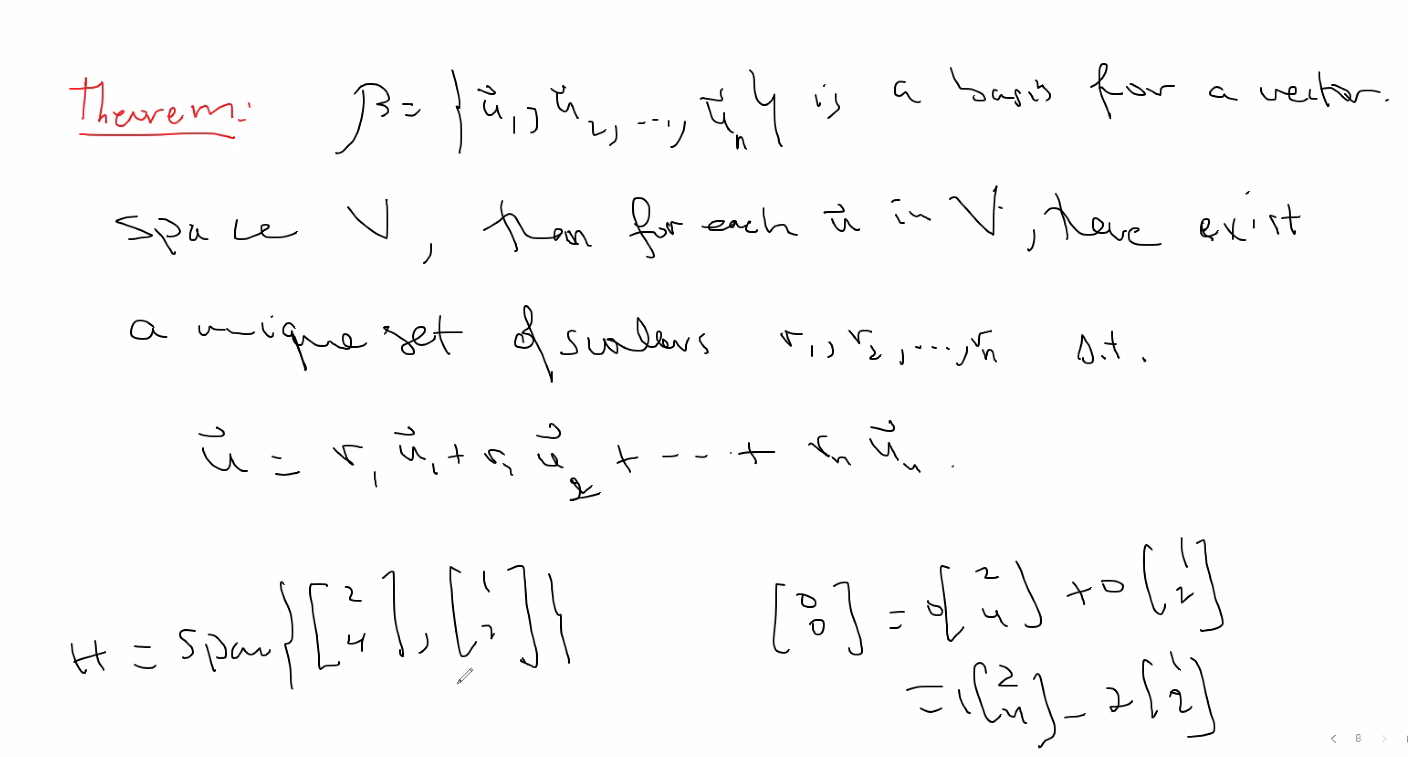 Theorem: β = {u⃗₁, u⃗₂, ..., u⃗ₙ} is a basis for a vector.
space V, then for each u⃗ in V, there exist
a unique set of scalars r₁, r₂, ..., rₙ s.t.
u⃗ = r₁ u⃗₁ + r₂ u⃗₂ + --- + rₙ u⃗ₙ.
H = span{[2 4], [1 2]}
[0 0] = 0[2 4] + 0[1 2]
= 1[2 4] - 2[1 2]
< 8 >